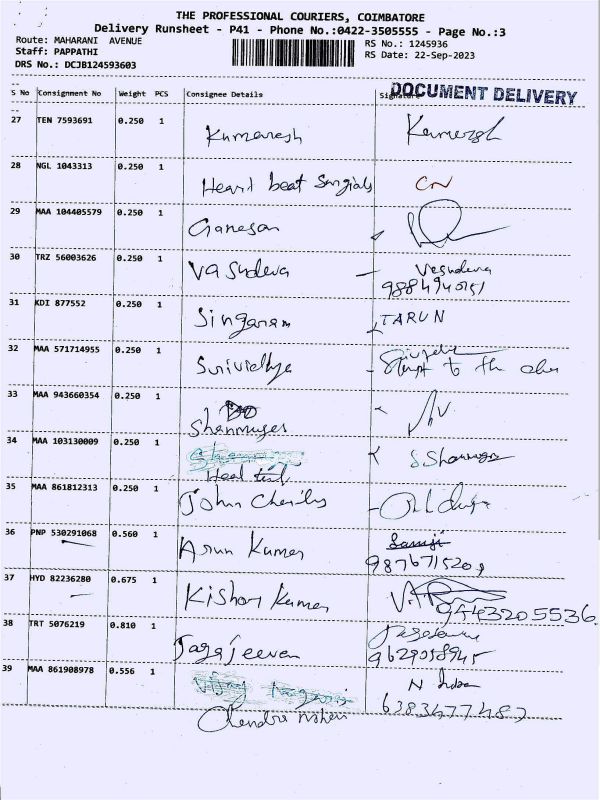 THE PROFESSIONAL COURIERS, COIMBATORE
Delivery Runsheet - P41 - Phone No.:0422-3505555 - Page No.:3
Route: MAHARANI AVENUE
RS No.: 1245936
Staff: PAPPATHI
RS Date: 22-Sep-2023
DRS No.: DCJB124593603
DOCUMENT DELIVERY
S No Consignment No Weight PCS Consignee Details Signature
27 TEN 7593691 0.250 1 Kumaresh
28 NGL 1043313 0.250 1 Heart beat CN
29 MAA 104405579 0.250 1 Ganesan
30 TRZ 56003626 0.250 1 Vasudeva Vasudeva
9884940151
31 KDI 877552 0.250 1 Singaram TARUN
32 MAA 571714955 0.250 1 Srividhya to the
33 MAA 943660354 0.250 1
34 MAA 103130009 0.250 1
35 MAA 861812313 0.250 1 John
36 PNP 530291068 0.560 1 Arun Kumar
37 HYD 82236280 0.675 1 Kishor Kumar
9443205536
38 TRT 5076219 0.810 1 Jagajeevan
9629058945
39 MAA 861908978 0.556 1